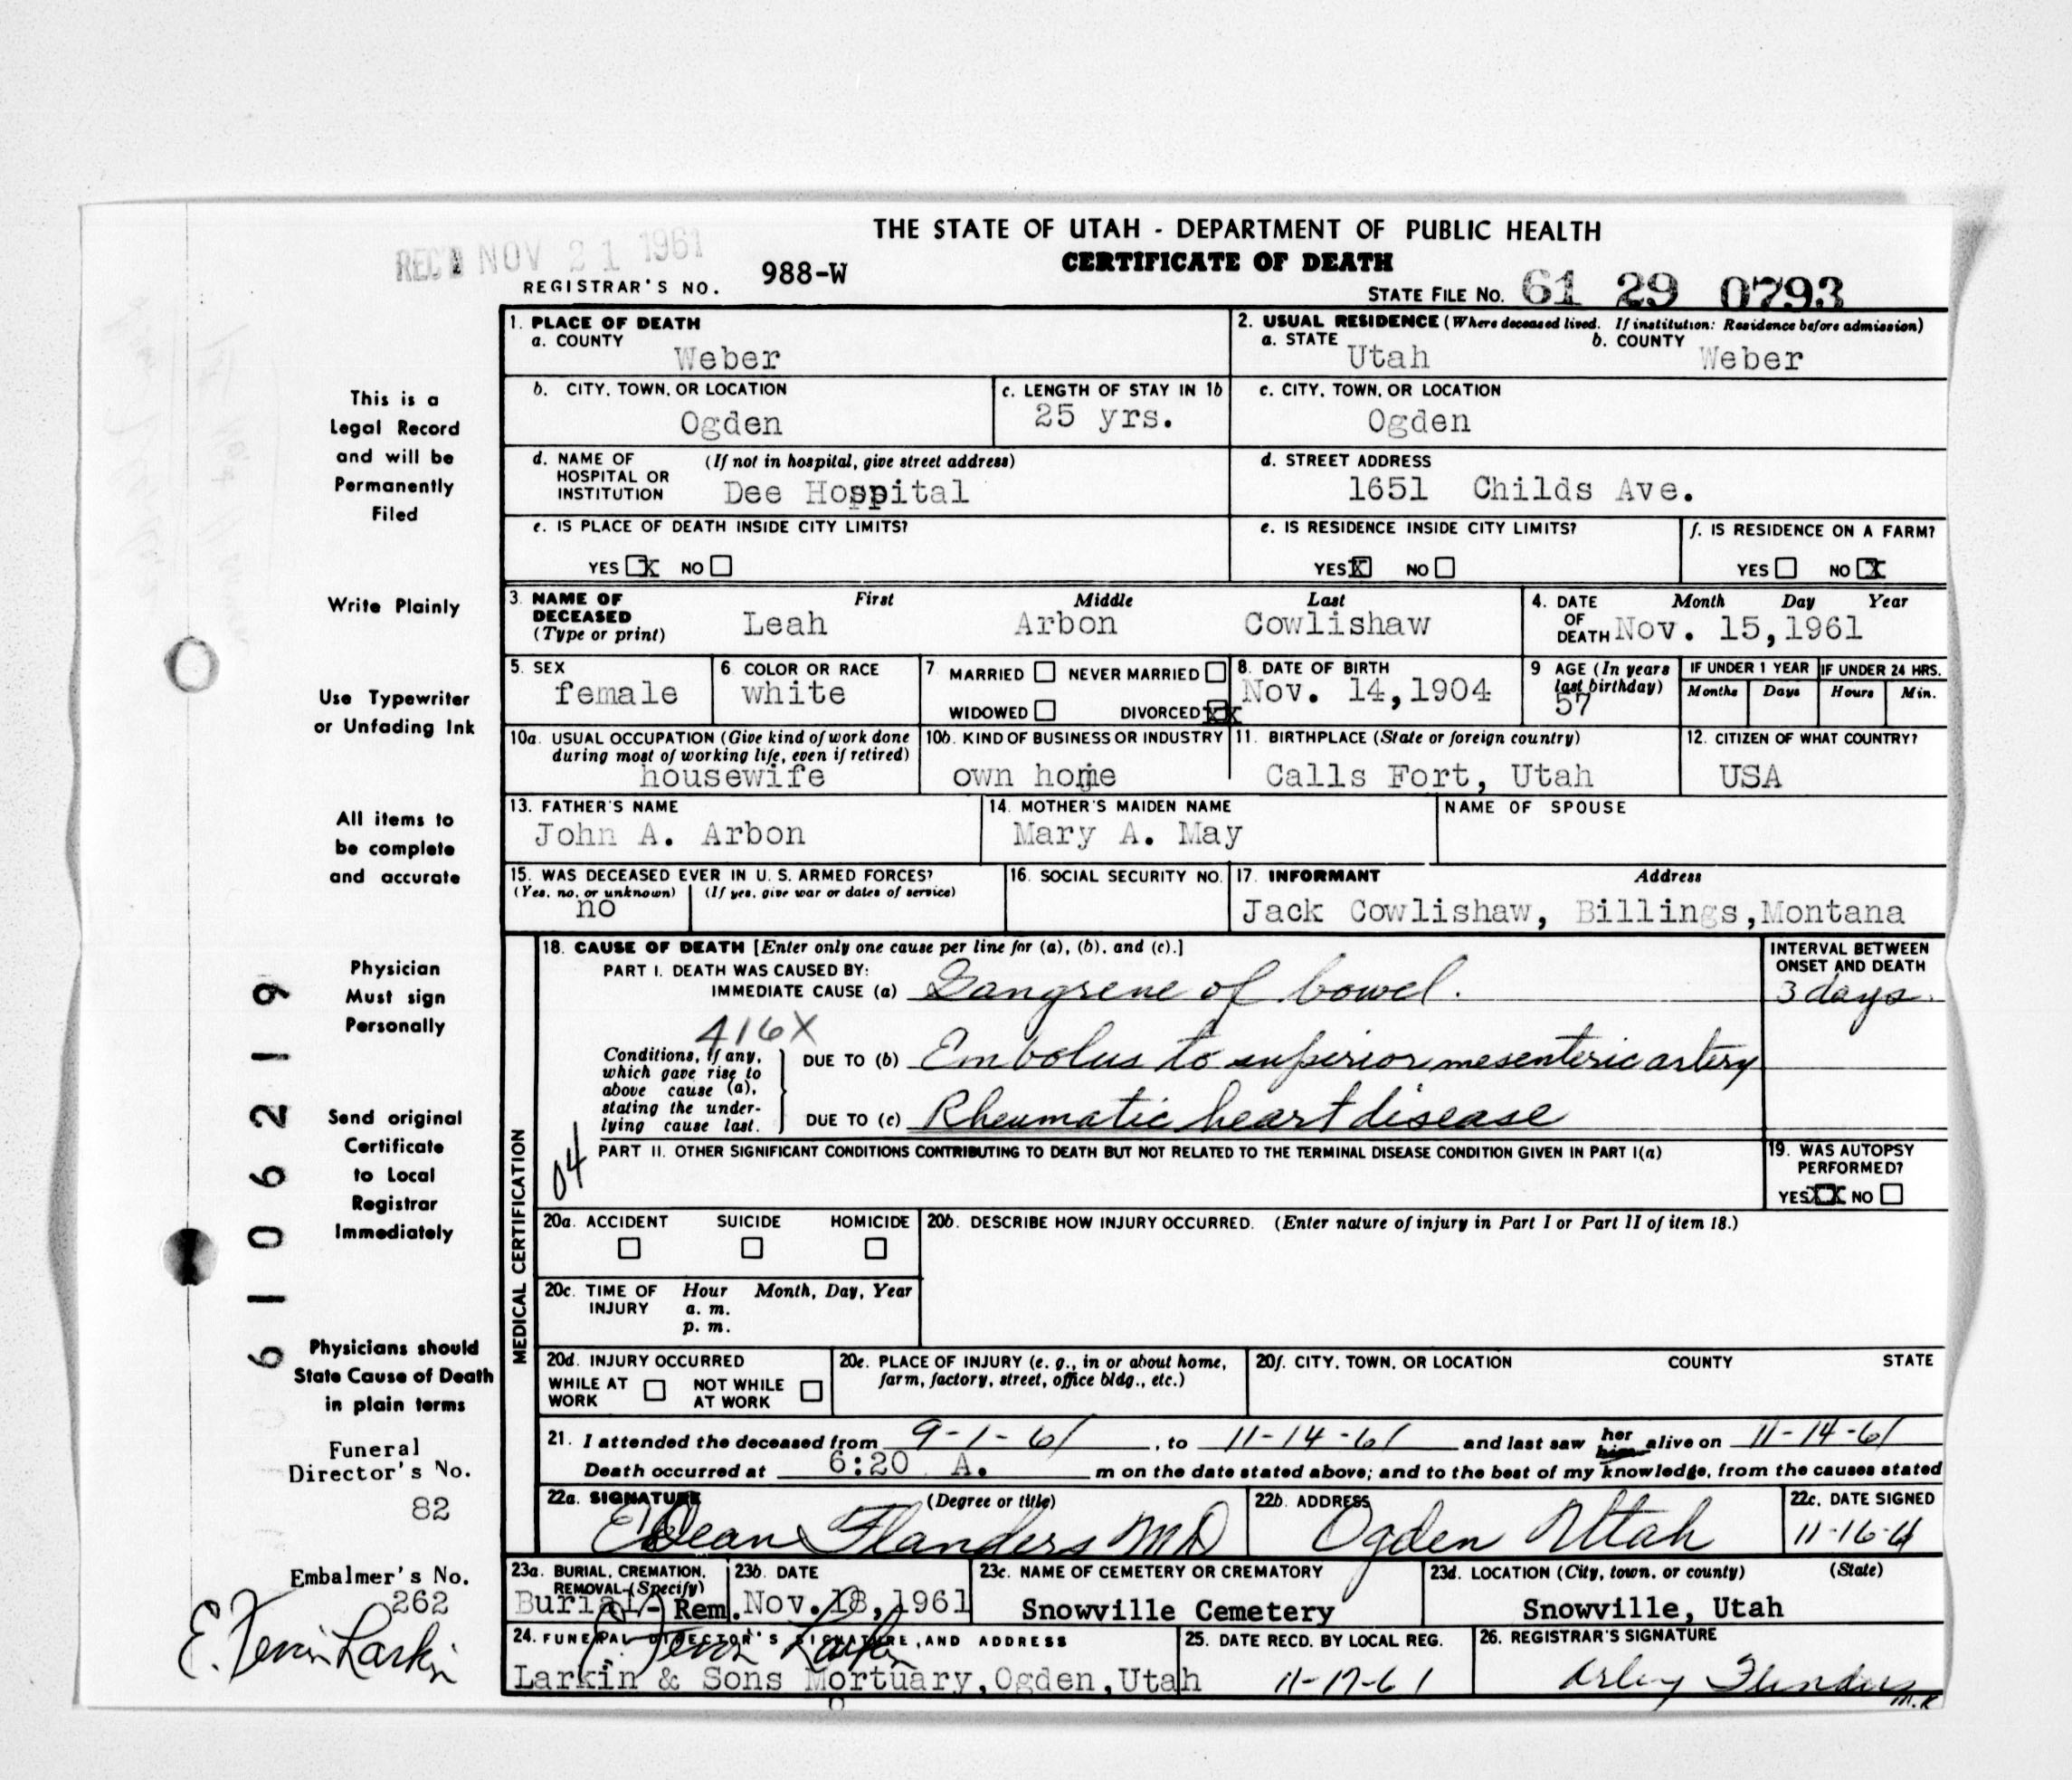 THE STATE OF UTAH - DEPARTMENT OF PUBLIC HEALTH
CERTIFICATE OF DEATH
REC'D NOV 21 1961
REGISTRAR'S NO. 988-W
STATE FILE NO. 61 29 0793
1. PLACE OF DEATH
a. COUNTY
Weber
2. USUAL RESIDENCE (Where deceased lived. If institution: Residence before admission)
a. STATE Utah b. COUNTY Weber
b. CITY, TOWN, OR LOCATION
Ogden
c. LENGTH OF STAY IN 1b
25 yrs.
c. CITY, TOWN, OR LOCATION
Ogden
d. NAME OF HOSPITAL OR INSTITUTION (If not in hospital, give street address)
Dee Hospital
d. STREET ADDRESS
1651 Childs Ave.
e. IS PLACE OF DEATH INSIDE CITY LIMITS?
YES X NO
e. IS RESIDENCE INSIDE CITY LIMITS?
YES X NO
f. IS RESIDENCE ON A FARM?
YES NO X
3. NAME OF DECEASED (Type or print)
First Middle Last
Leah Arbon Cowlishaw
4. DATE OF DEATH Month Day Year
Nov. 15,1961
5. SEX
female
6. COLOR OR RACE
white
7 MARRIED NEVER MARRIED
WIDOWED DIVORCED XX
8. DATE OF BIRTH
Nov. 14,1904
9 AGE (In years last birthday)
57
IF UNDER 1 YEAR IF UNDER 24 HRS.
Months Days Hours Min.
10a. USUAL OCCUPATION (Give kind of work done during most of working life, even if retired)
housewife
10b. KIND OF BUSINESS OR INDUSTRY
own home
11. BIRTHPLACE (State or foreign country)
Calls Fort, Utah
12. CITIZEN OF WHAT COUNTRY?
USA
13. FATHER'S NAME
John A. Arbon
14. MOTHER'S MAIDEN NAME
Mary A. May
NAME OF SPOUSE
15. WAS DECEASED EVER IN U. S. ARMED FORCES?
(Yes, no, or unknown) (If yes, give war or dates of service)
no
16. SOCIAL SECURITY NO.
17. INFORMANT Address
Jack Cowlishaw, Billings,Montana
MEDICAL CERTIFICATION
18. CAUSE OF DEATH [Enter only one cause per line for (a), (b), and (c).]
PART I. DEATH WAS CAUSED BY:
IMMEDIATE CAUSE (a) Gangrene of bowel.
INTERVAL BETWEEN ONSET AND DEATH
3 days.
416X
Conditions, if any, which gave rise to above cause (a), stating the underlying cause last.
DUE TO (b) Embolus to superior mesenteric artery
DUE TO (c) Rheumatic heart disease
04
PART II. OTHER SIGNIFICANT CONDITIONS CONTRIBUTING TO DEATH BUT NOT RELATED TO THE TERMINAL DISEASE CONDITION GIVEN IN PART I(a)
19. WAS AUTOPSY PERFORMED?
YES XX NO
20a. ACCIDENT SUICIDE HOMICIDE
20b. DESCRIBE HOW INJURY OCCURRED. (Enter nature of injury in Part I or Part II of item 18.)
20c. TIME OF INJURY Hour Month, Day, Year
a. m.
p. m.
20d. INJURY OCCURRED
WHILE AT WORK NOT WHILE AT WORK
20e. PLACE OF INJURY (e. g., in or about home, farm, factory, street, office bldg., etc.)
20f. CITY, TOWN, OR LOCATION COUNTY STATE
21. I attended the deceased from 9-1-61, to 11-14-61 and last saw her him alive on 11-14-61
Death occurred at 6:20 A. m on the date stated above; and to the best of my knowledge, from the causes stated
22a. SIGNATURE (Degree or title)
E Dean Flanders MD
22b. ADDRESS
Ogden Utah
22c. DATE SIGNED
11-16-61
23a. BURIAL, CREMATION, REMOVAL (Specify)
Burial- Rem.
23b. DATE
Nov. 18, 1961
23c. NAME OF CEMETERY OR CREMATORY
Snowville Cemetery
23d. LOCATION (City, town, or county) (State)
Snowville, Utah
24. FUNERAL DIRECTOR'S SIGNATURE, AND ADDRESS
Larkin & Sons Mortuary,Ogden,Utah
25. DATE RECD. BY LOCAL REG.
11-17-61
26. REGISTRAR'S SIGNATURE
This is a
Legal Record
and will be
Permanently
Filed
Write Plainly
Use Typewriter
or Unfading Ink
All items to
be complete
and accurate
Physician
Must sign
Personally
Send original
Certificate
to Local
Registrar
Immediately
Physicians should
State Cause of Death
in plain terms
6106219
Funeral
Director's No.
82
Embalmer's No.
262
Larkin